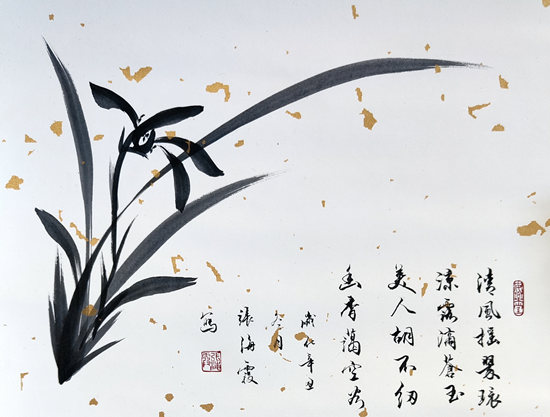 清風搖翠環
涼露滴蒼玉
美人胡不紉
幽香藹空谷
歲在辛丑
月
張海霞
寫